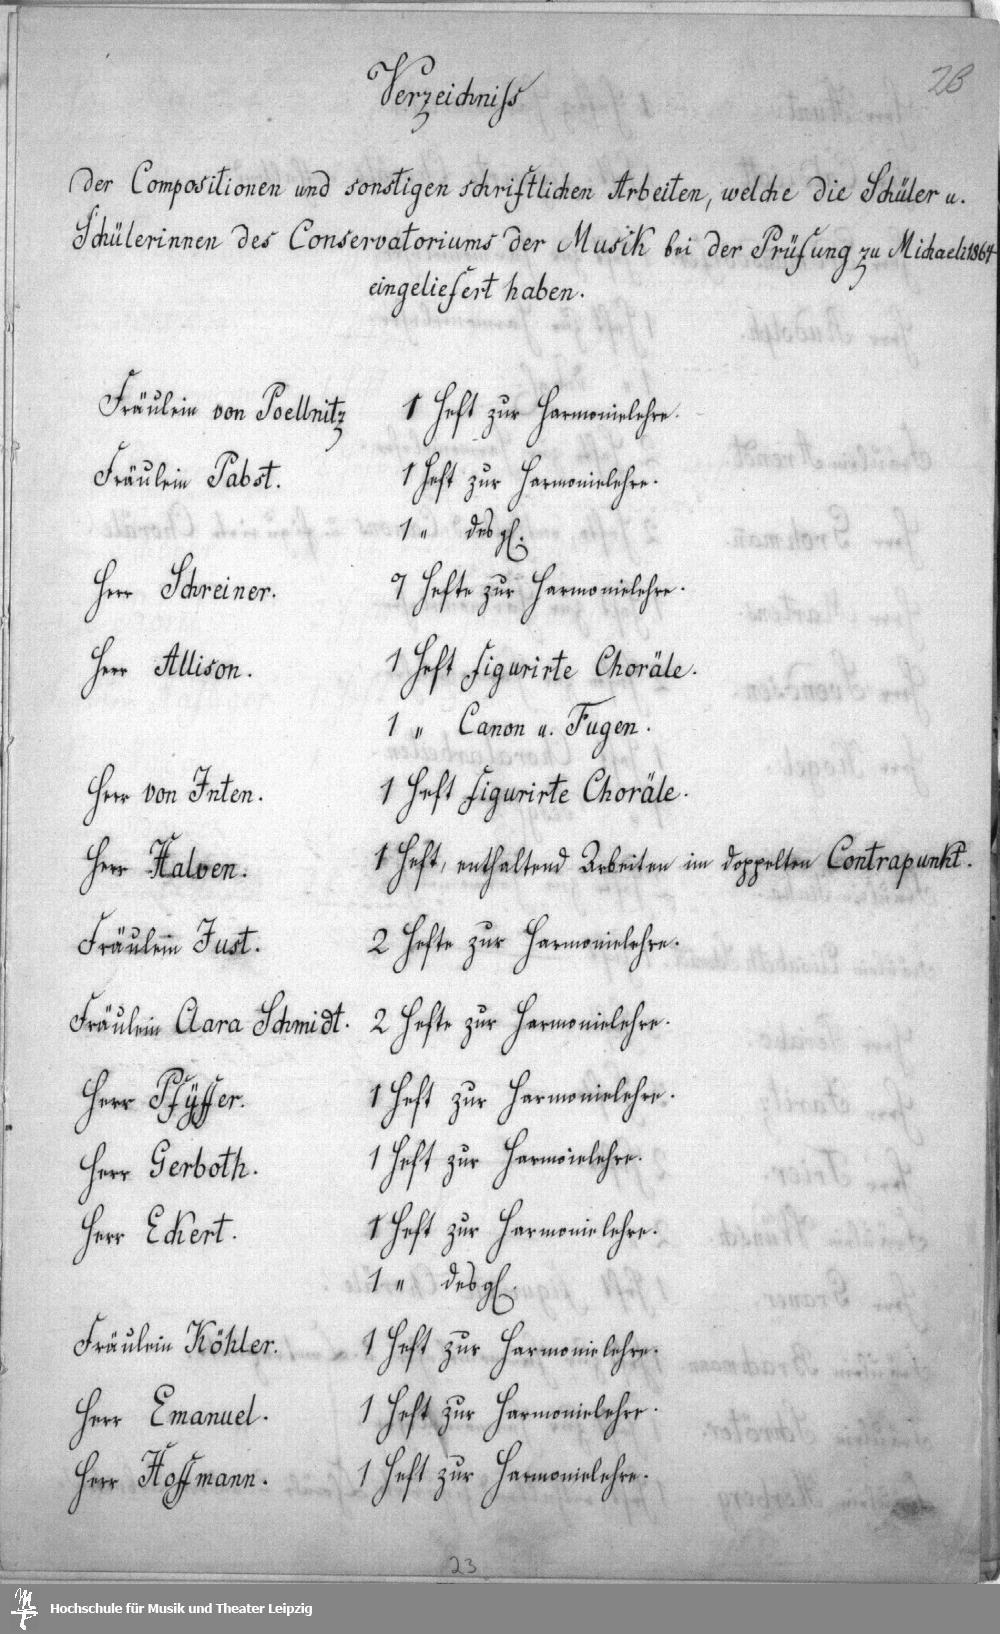 28
Verzeichniss
der Compositionen und sonstigen schriftlichen Arbeiten, welche die Schüler u.
Schülerinnen des Conservatoriums der Musik bei der Prüfung zu Michaeli 1864
eingeliefert haben.
Fräulein von Poellnitz 1 Heft zur Harmonielehre.
Fräulein Pabst. 1 Heft zur Harmonielehre.
1 " desgl.
Herr Schreiner. 7 Hefte zur Harmonielehre.
Herr Allison. 1 Heft figurirte Choräle.
1 " Canon u. Fugen.
Herr von Inten. 1 Heft figurirte Choräle.
Herr Halven. 1 Heft, enthaltend Arbeiten im doppelten Contrapunkt.
Fräulein Just. 2 Hefte zur Harmonielehre.
Fräulein Clara Schmidt. 2 Hefte zur Harmonielehre.
Herr Pfÿffer. 1 Heft zur Harmonielehre.
Herr Gerboth. 1 Heft zur Harmoielehre.
Herr Eckert. 1 Heft zur Harmonielehre.
1 " desgl.
Fräulein Köhler. 1 Heft zur Harmonielehre.
Herr Emanuel. 1 Heft zur Harmonielehre.
Herr Hoffmann. 1 Heft zur Harmonielehre.
23
Hochschule für Musik und Theater Leipzig